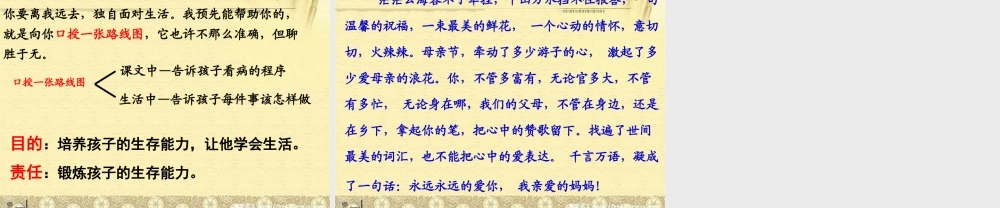 你要离我远去，独自面对生活。我预先能帮助你的，
就是向你口授一张路线图，它也许不那么准确，但聊
胜于无。
口授一张路线图
课文中—告诉孩子看病的程序
生活中—告诉孩子每件事该怎样做
目的：培养孩子的生存能力，让他学会生活。
责任：锻炼孩子的生存能力。
温馨的祝福，一束最美的鲜花， 一个心动的情怀，意切
切，火辣辣。母亲节，牵动了多少游子的心， 激起了多
少爱母亲的浪花。你，不管多富有，无论官多大，不管
有多忙， 无论身在哪，我们的父母，不管在身边，还是
在乡下，拿起你的笔，把心中的赞歌留下。找遍了世间
最美的词汇，也不能把心中的爱表达。 千言万语，凝成
了一句话：永远永远的爱你， 我亲爱的妈妈！